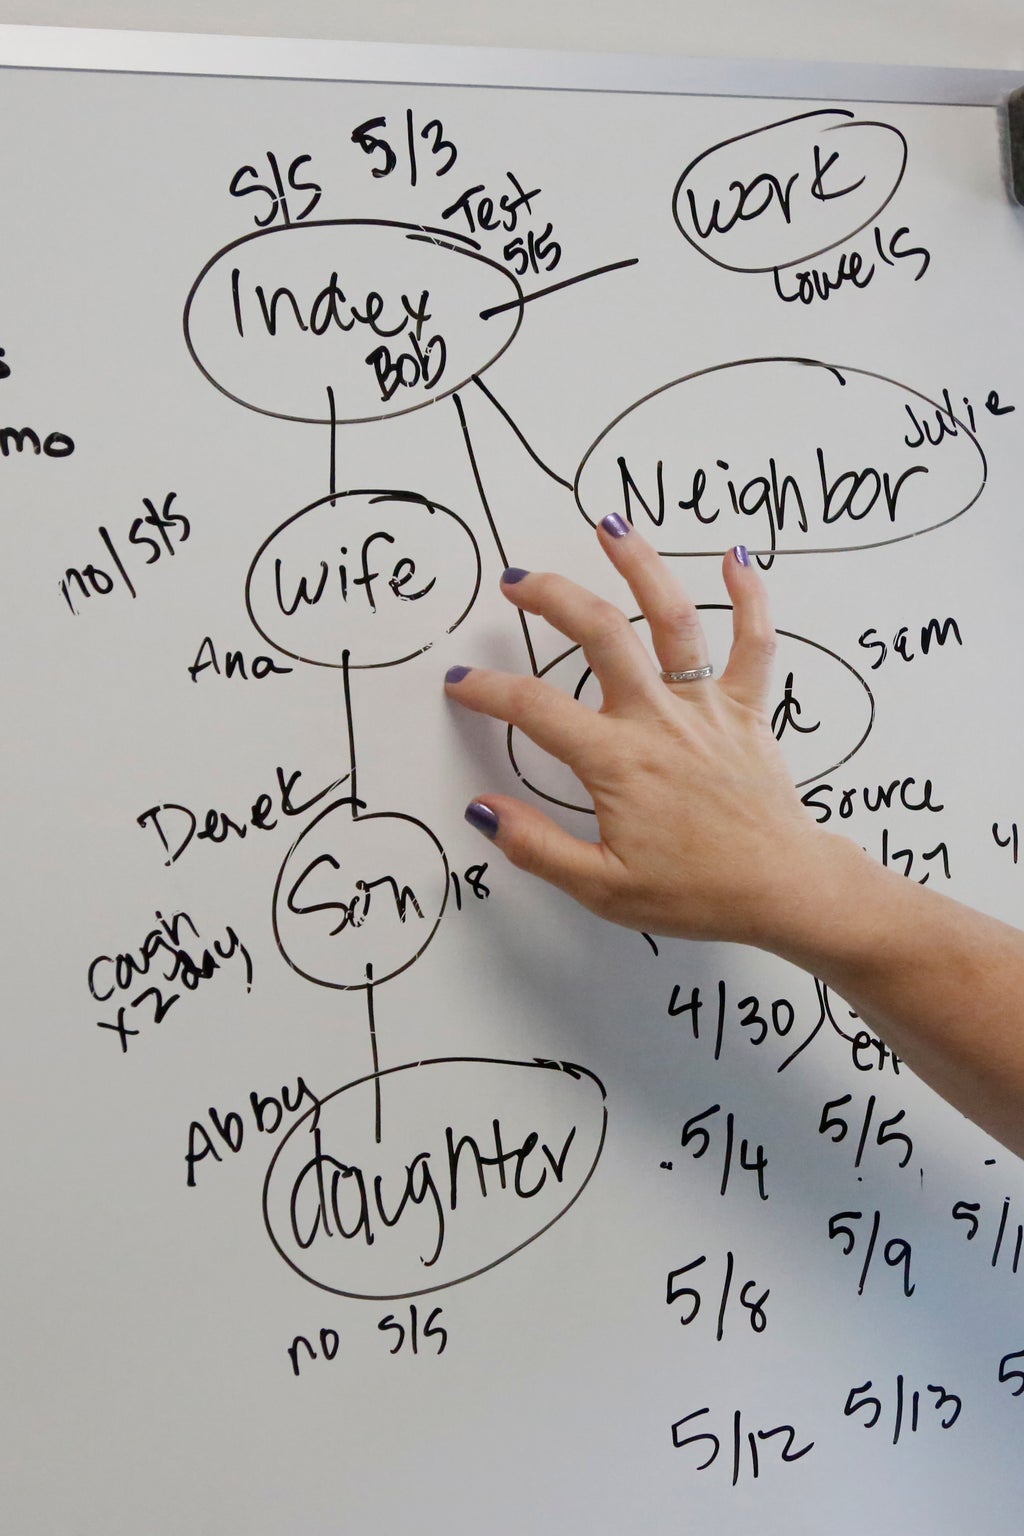 S/S 5/3
Test
5/5
Index
Bob
work
Lowe's
Julie
Neighbor
mo
no/S/S
wife
Ana
Sam
Derek
Son
18
cough
x2 day
source
/27 4
4/30
Abby
daughter
no S/S
5/4 5/5
5/8 5/9
5/12 5/13